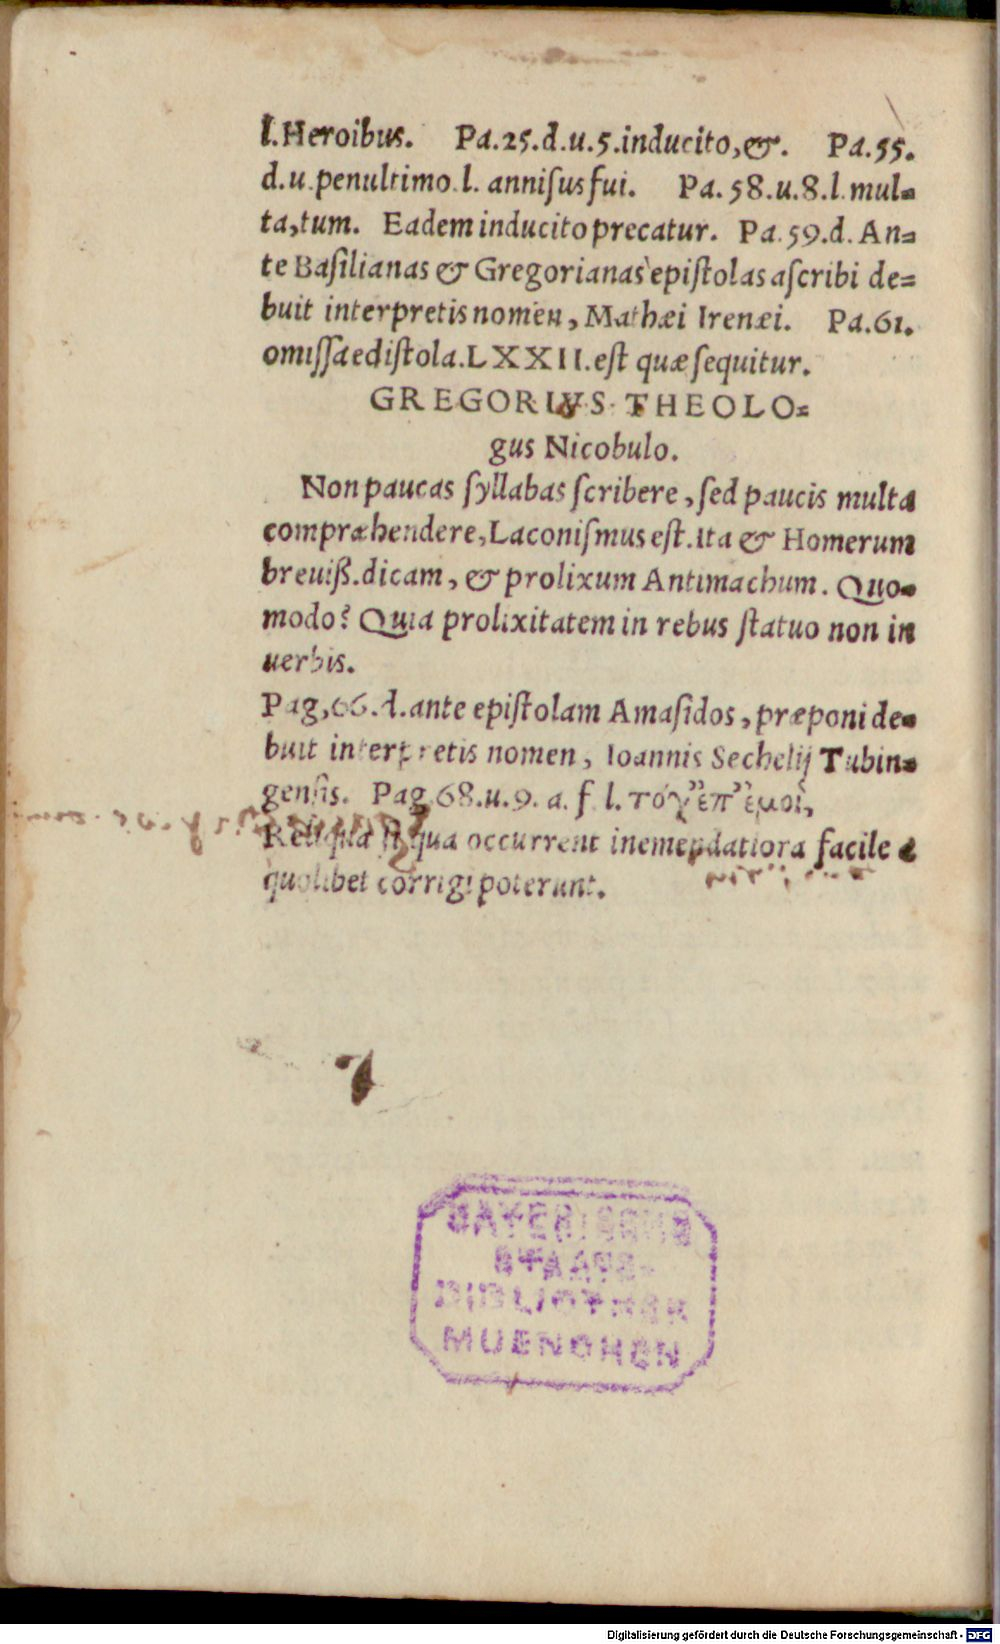 l. Heroibus. Pa.25.d.u.5.inducito,&. Pa.55.
d.u.penultimo.l. anniſus fui. Pa.58.u.8.l.mul=
ta,tum. Eadem inducito precatur. Pa.59.d. An=
te Baſilianas & Gregorianas epiſtolas aſcribi de=
buit interpretis nomen, Mathæi Irenæi. Pa.61.
omiſſa ediſtola.LXXII.eſt quæ ſequitur.
GREGORIVS THEOLO=
gus Nicobulo.
Non paucas ſyllabas ſcribere, ſed paucis multa
compræhendere, Laconiſmus eſt. Ita & Homerum
breuiß.dicam, & prolixum Antimachum. Quo=
modo? Quia prolixitatem in rebus ſtatuo non in
uerbis.
Pag,66.d.ante epiſtolam Amaſidos, præponi de=
buit interpretis nomen, Ioannis Sechelij Tubin=
genſis. Pag.68.u.9. a. f. l. τόγ' ἐπ' ἐμοὶ,
Reliqua ſi qua occurrent inemendatiora facile à
quolibet corrigi poterunt.
BAYERISCHE
STAATS-
BIBLIOTHEK
MUENCHEN
Digitalisierung gefördert durch die Deutsche Forschungsgemeinschaft - DFG